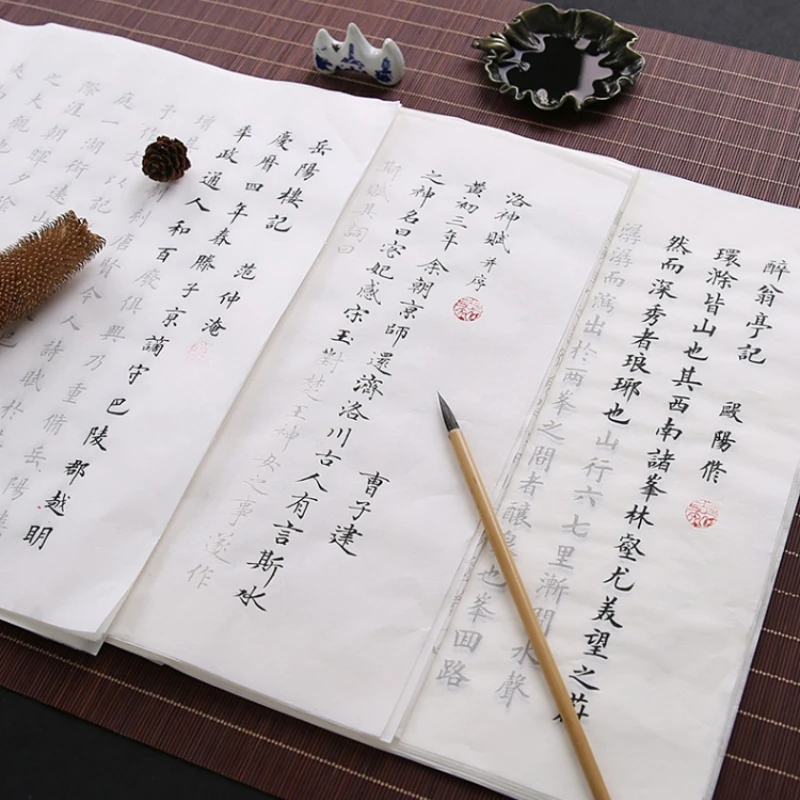 醉翁亭記 歐陽脩
環滁皆山也其西南諸峯林壑尤美望之蔚
然而深秀者琅琊也山行六七里漸聞水聲
潺潺而瀉出於两峯之間者釀泉也峯回路
洛神賦并序 曹子建
黄初三年余朝京師還濟洛川古人有言斯水
之神名曰宓妃感宋玉對楚王神女之事遂作
斯賦其詞曰
岳陽樓記 范仲淹
慶曆四年春滕子京謫守巴陵郡越明
年政通人和百廢俱興乃重脩岳陽樓
增制刻唐賢今人詩賦於
予作文以記
庭一湖銜遠山
際涯朝暉夕陰
之大觀也